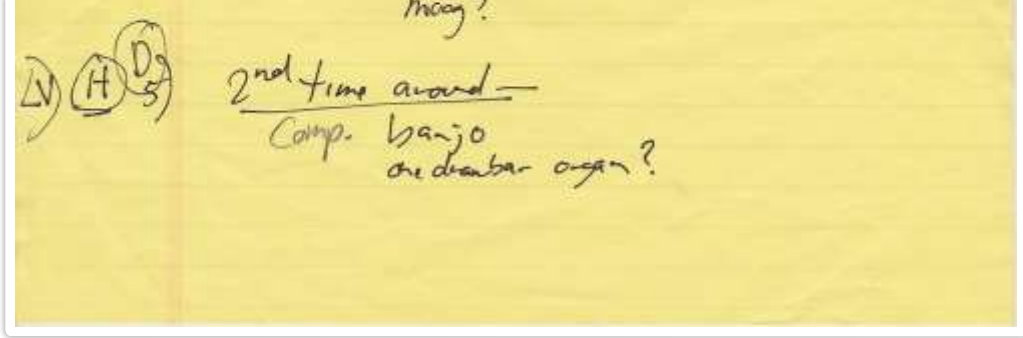 moog?
LV) H D2
5) 2nd time around—
Comp. banjo
one drawbar organ?